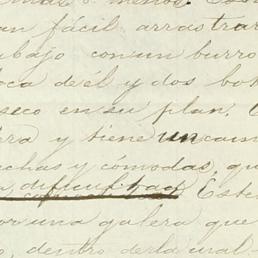 mas o menos. Este
an fácil arrastrar
abajo con un burro
oca de él y dos bot
seco en su plan. E
era y tiene un cam
uchas y cómodas, qu
dificultad Este
por una galera que
o, dentro de la cual